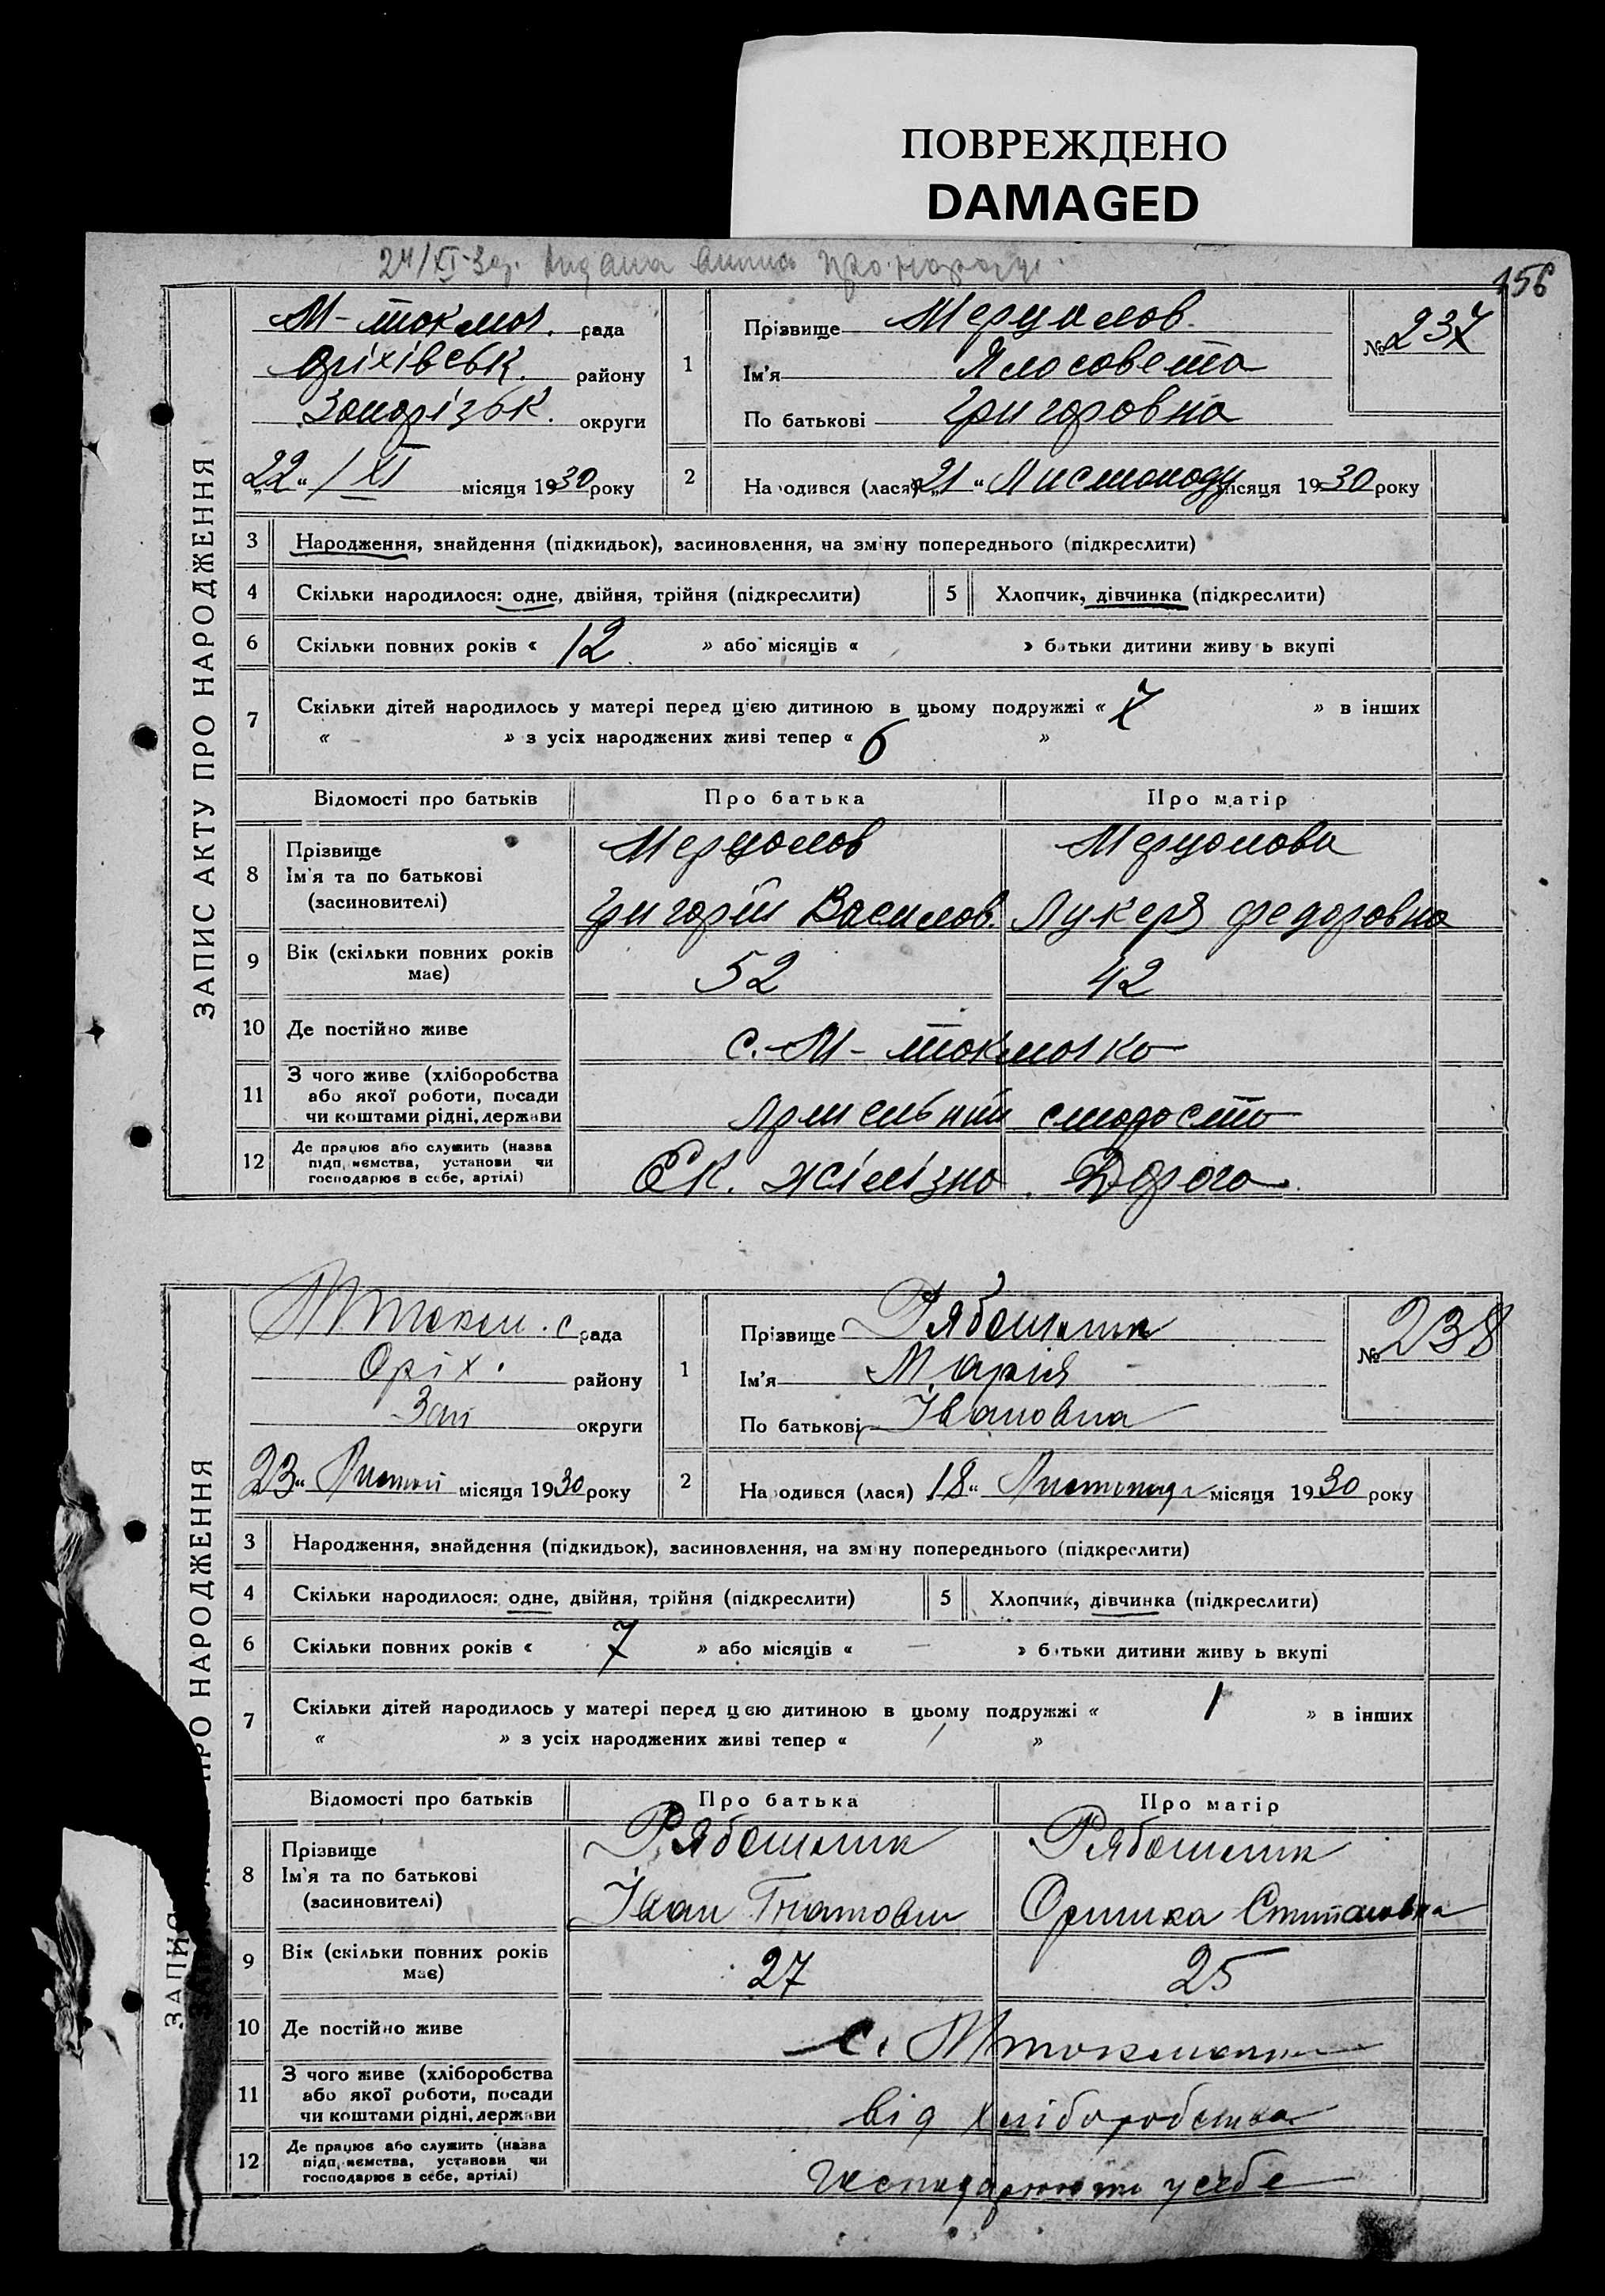 ПОВРЕЖДЕНО
DAMAGED
24/XI-30р. видана про народж.
156
ЗАПИС АКТУ ПРО НАРОДЖЕННЯ
М-токмач. рада
Оріхівськ. району
Запорізьк. округи
„22“ / XI місяця 1930 року
1
Прізвище
Ім'я
По батькові Григоровна
№ 237
2 Народився (лася) „21“ Листопаду місяця 1930 року
3 Народження, знайдення (підкидьок), засиновлення, на зміну попереднього (підкреслити)
4 Скільки народилося: одне, двійня, трійня (підкреслити) 5 Хлопчик, дівчинка (підкреслити)
6 Скільки повних років « 12 » або місяців « » батьки дитини живуть вкупі
7 Скільки дітей народилось у матері перед цією дитиною в цьому подружжі « 7 » в інших
« - » з усіх народжених живі тепер « 6 »
Відомості про батьків Про батька Про матір
8 Прізвище
Ім'я та по батькові
(засиновителі)
Григорій Василов. Лукеря Федоровна
9 Вік (скільки повних років має) 52 42
10 Де постійно живе с. М-токмачко
11 З чого живе (хліборобства або якої роботи, посади чи коштами рідні, держави
12 Де працює або служить (назва підприємства, установи чи господарює в себе, артілі) Ек. жілізна Дорога.
ЗАПИС АКТУ ПРО НАРОДЖЕННЯ
Мтокм. с рада
Оріх. району
Зап округи
„23“ Листоп місяця 1930 року
1
Прізвище Рябошапк
Ім'я Марія
По батькові Івановна
№ 238
2 Народився (лася) „18“ Листопада місяця 1930 року
3 Народження, знайдення (підкидьок), засиновлення, на зміну попереднього (підкреслити)
4 Скільки народилося: одне, двійня, трійня (підкреслити) 5 Хлопчик, дівчинка (підкреслити)
6 Скільки повних років « 7 » або місяців « — » батьки дитини живуть вкупі
7 Скільки дітей народилось у матері перед цією дитиною в цьому подружжі « 1 » в інших
« » з усіх народжених живі тепер « / »
Відомості про батьків Про батька Про матір
8 Прізвище
Ім'я та по батькові
(засиновителі)
Іван Гнатович Оришка Степановна
9 Вік (скільки повних років має) 27 25
10 Де постійно живе с. Мтокмачка
11 З чого живе (хліборобства або якої роботи, посади чи коштами рідні, держави від хліборобства
12 Де працює або служить (назва підприємства, установи чи господарює в себе, артілі) Господарюють у себе